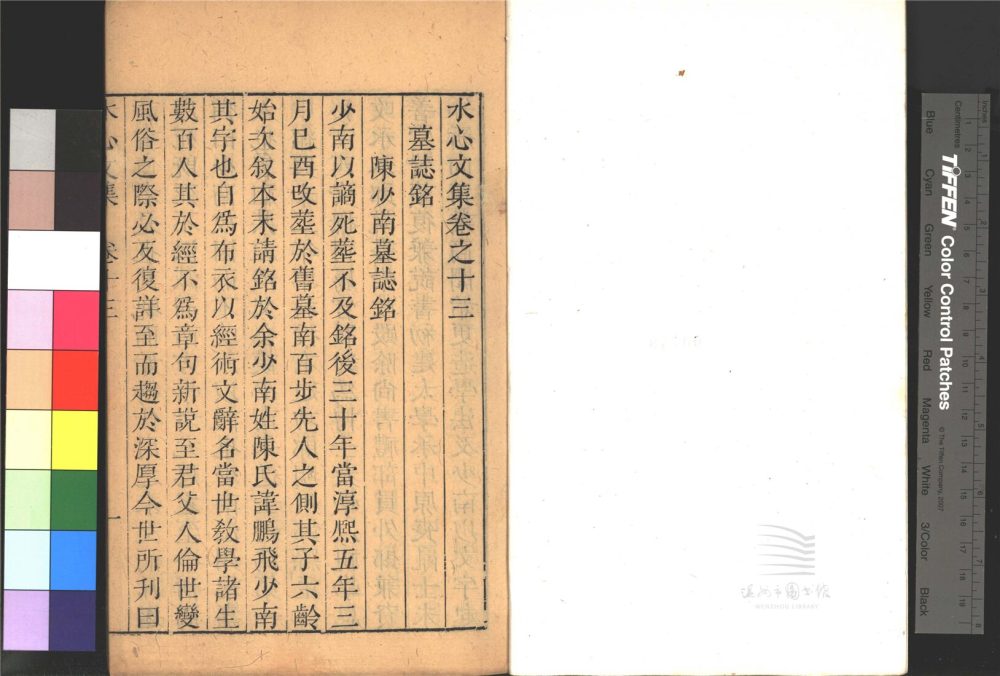 水心文集卷之十三
墓誌銘
陳少南墓誌銘
少南以謫死葬不及銘後三十年當淳熙五年三
月巳酉攺葬於舊墓南百步先人之側其子六齡
始次叙本末請銘於余少南姓陳氏諱鵬飛少南
其字也自爲布衣以經術文辭名當世敎學諸生
數百人其於經不爲章句新說至君父人倫世變
風俗之際必反復詳至而趨於深厚今世所刋曰
水心文集 卷十三 一
溫州市圖書館
WENZHOU LIBRARY
Inches
Centimetres
TIFFEN Color Control Patches
© The Tiffen Company, 2007
Blue
Cyan
Green
Yellow
Red
Magenta
White
3/Color
Black